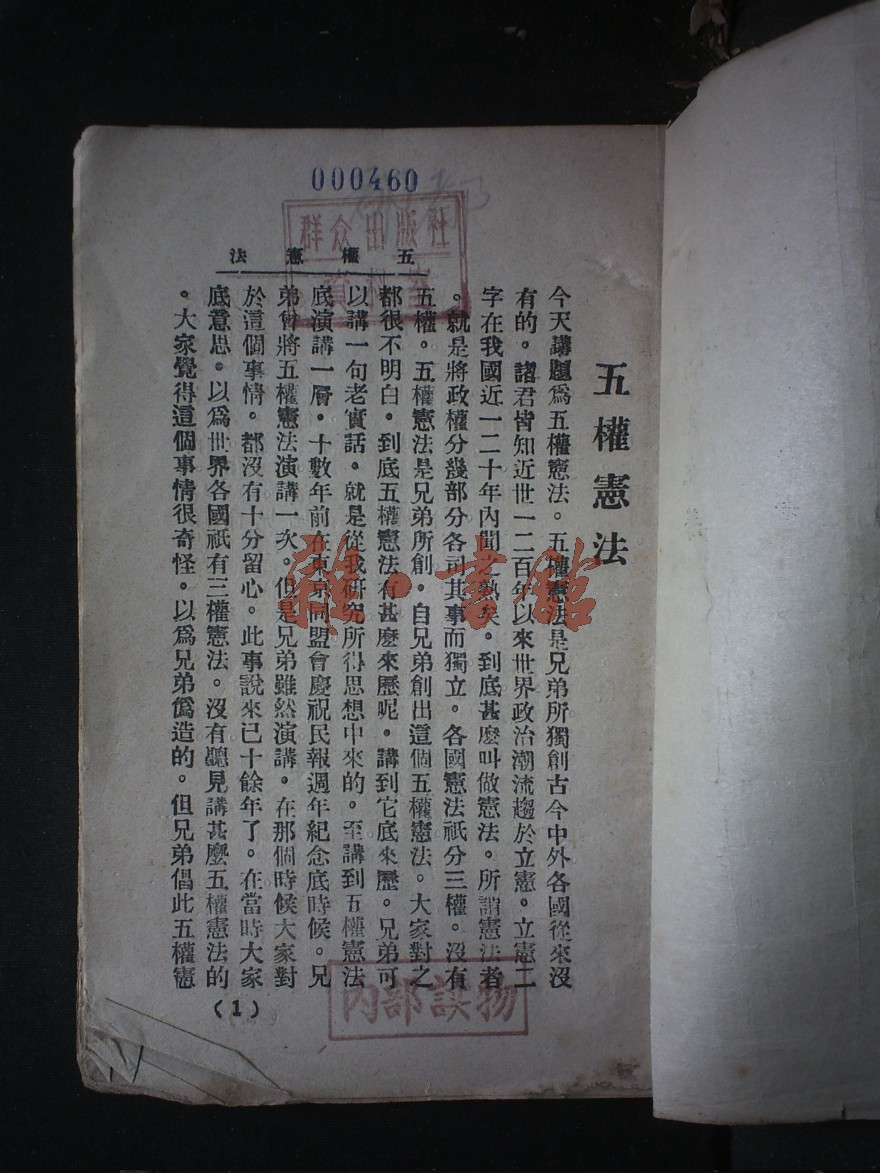 000460
群众出版社
五權憲法
五權憲法
今天講題爲五權憲法。五權憲法是兄弟所獨創古今中外各國從來沒
有的。諸君皆知近世一二百年以來世界政治潮流趨於立憲。立憲二
字在我國近一二十年內聞之熟矣。到底甚麽叫做憲法。所謂憲法者
。就是將政權分幾部分各司其事而獨立。各國憲法祇分三權。沒有
五權。五權憲法是兄弟所創。自兄弟創出這個五權憲法。大家對之
都很不明白。到底五權憲法有甚麽來歷呢。講到它底來歷。兄弟可
以講一句老實話。就是從我研究所得思想中來的。至講到五權憲法
底演講一層。十數年前在東京同盟會慶祝民報週年紀念底時候。兄
弟曾將五權憲法演講一次。但是兄弟雖然演講。在那個時候大家對
於這個事情。都沒有十分留心。此事說來已十餘年了。在當時大家
底意思。以爲世界各國祇有三權憲法。沒有聽見講甚麽五權憲法的
。大家覺得這個事情很奇怪。以爲兄弟僞造的。但兄弟倡此五權憲
(1)
内部读物
雜·書館